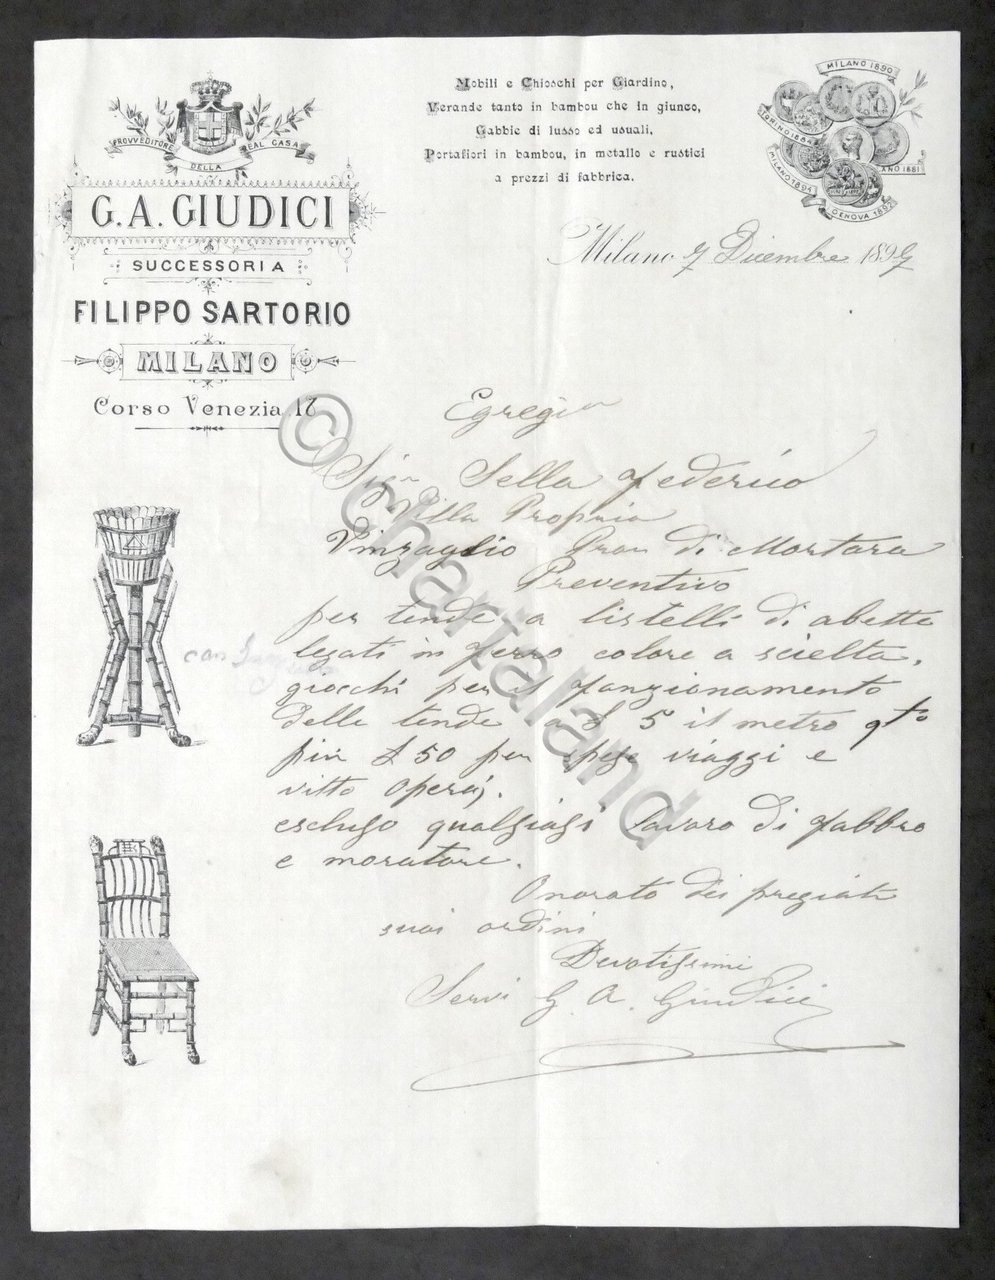 PROVVEDITORE DELLA REAL CASA
G. A. GIUDICI
SUCCESSORI A
FILIPPO SARTORIO
MILANO
Corso Venezia 17
Mobili e Chioschi per Giardino,
Verande tanto in bambou che in giunco,
Gabbie di lusso ed usuali,
Portafiori in bambou, in metallo e rustici
a prezzi di fabbrica.
MILANO 1890
TORINO 1884
MILANO 1894
MILANO 1881
GENOVA 1892
Milano 7 Dicembre 189
Egregio
Sigr Sella Federico
Villa Propria
Vinzaglio Prov di Mortara
Preventivo
per tende a listelli di abette
legati in ferro colore a scielta,
giocchi per il fonzionamento
delle tende a £ 5 il metro qto
piu £ 50 per spese viaggi e
vitto operaj.
escluso qualsiasi lavoro di fabbro
e moratore.
Onorato dei pregiati
suoi ordini
Devotissimi
Servi G. A. Giudici
© chartaland